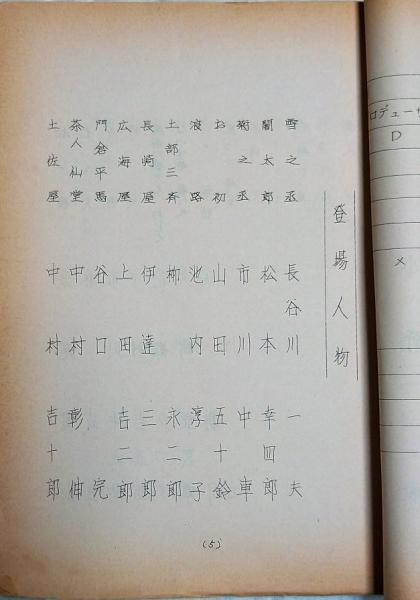 登場人物
雪之丞 長谷川一夫
闇太郎 松本幸四郎
菊之丞 市川中車
お初 山田五十鈴
浪路 池内淳子
土部三斉 柳永二郎
長崎屋 伊達三郎
広海屋 上田吉二郎
門倉平馬 谷口完
茶人仙堂 中村彰伸
土佐屋 中村吉十郎
(5)
ロデューサ
D
×